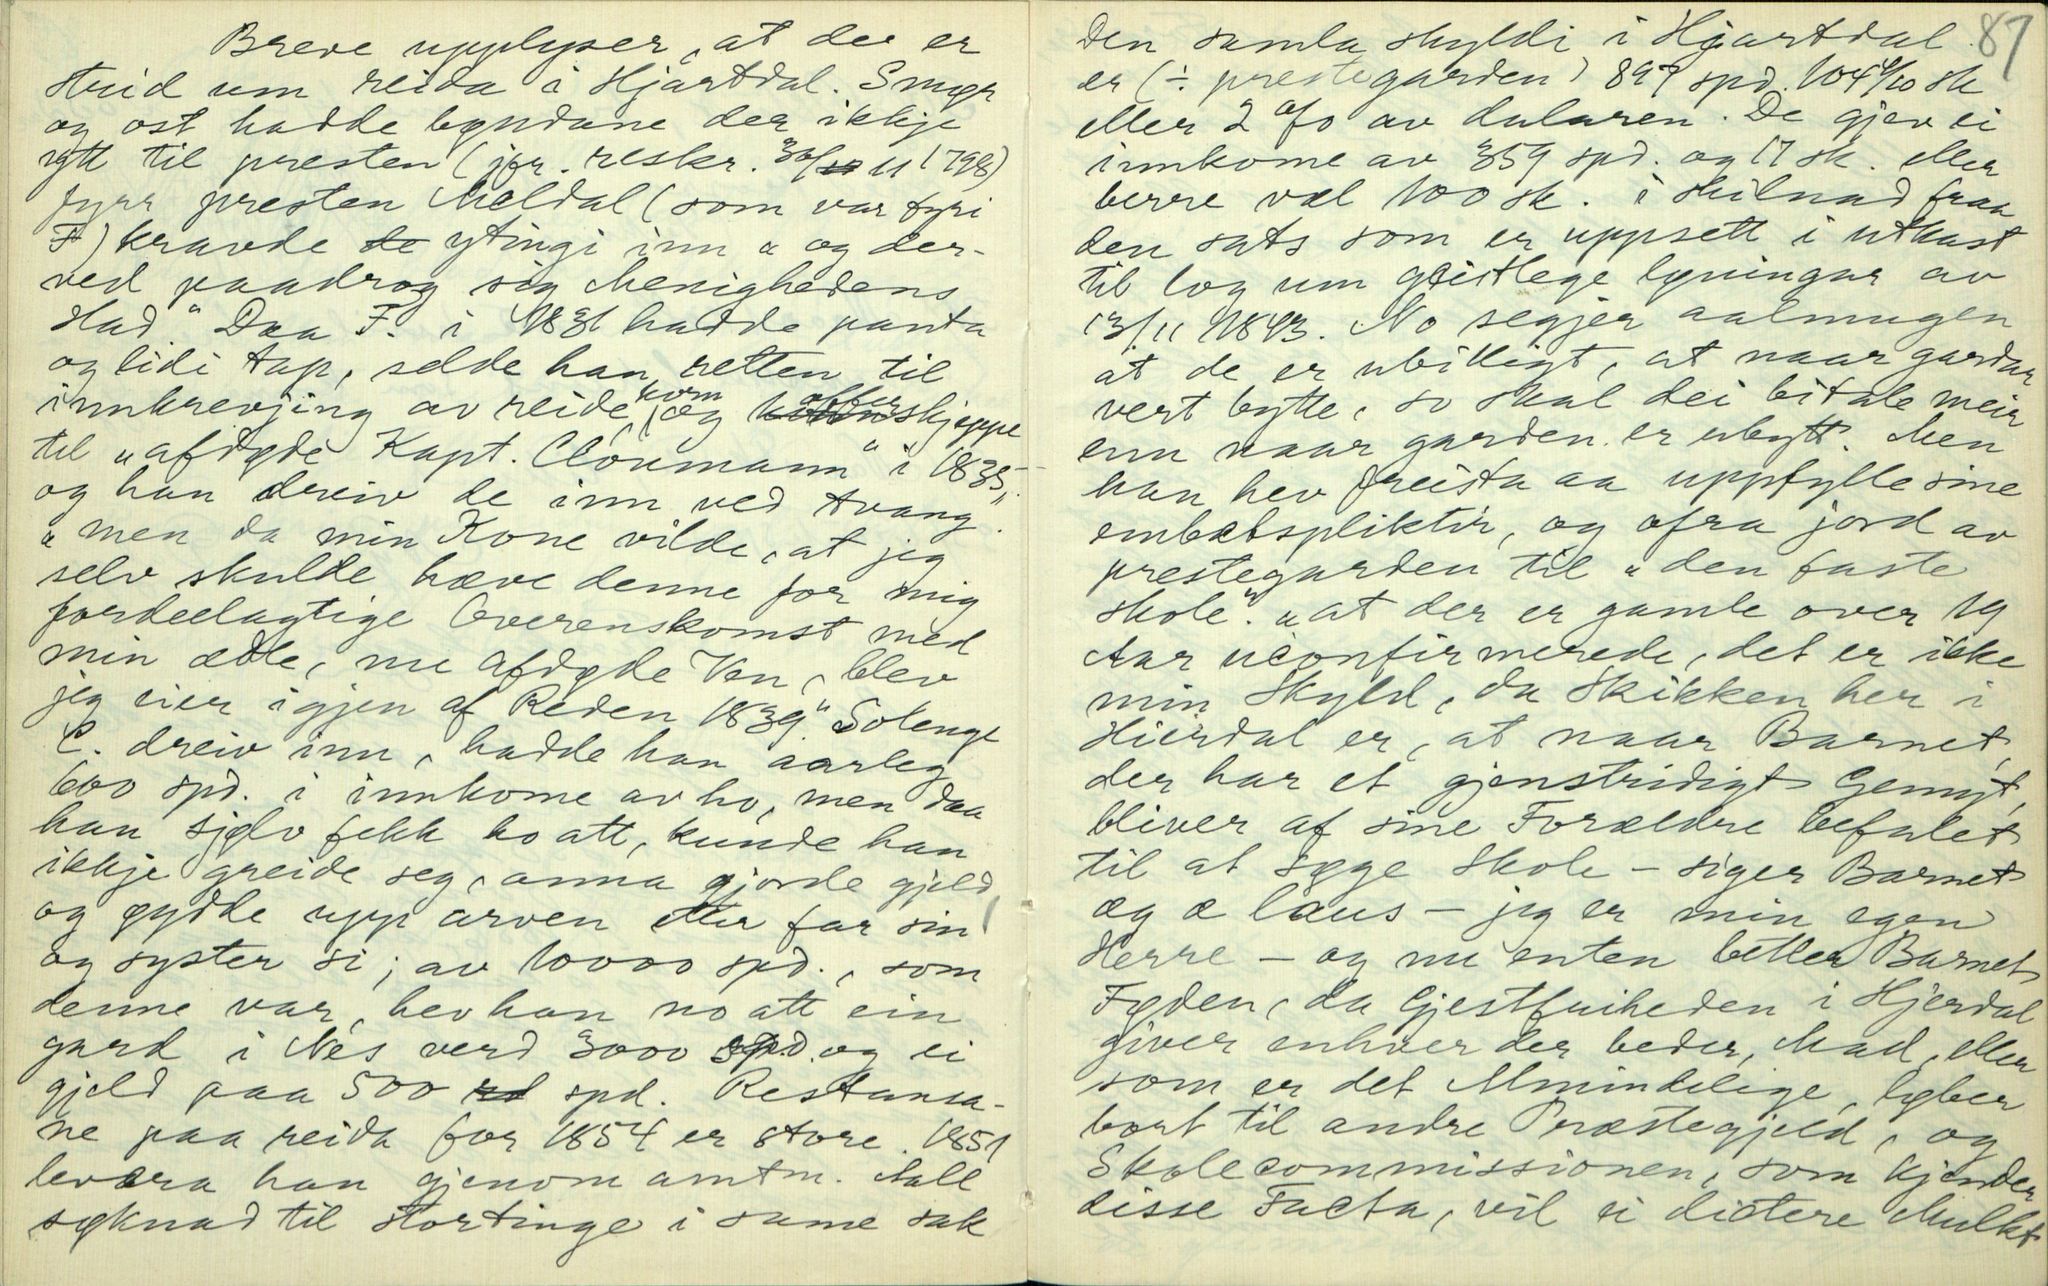 Breve upplyser, at der er
strid um reida i Hjartdal. Smør
og ost hadde bøndane der ikkje
ytt til presten (jfr. reskr. 30/11 1798)
fyrr presten Meldal (som var fyri
F) kravde de ytingi inn „ og der-
ved paadrog sig Menighedens
Had“ Daa F. i 1831 hadde panta
og lidi tap, selde han retten til
innkrevjing av reide, korn og offerskjeppe
til „afdøde Kapt. Cloumann“ i 1835,
og han dreiv de inn ved tvang.
„men da min Kone vilde, at jeg
selv skulde hæve denne for mig
fordeelagtige Overenskomst med
min ædle, nu afdøde Ven, blev
jeg eier igjen af Reden 1839.“ Solenge
C. dreiv inn, hadde han aarleg
600 spd. i innkome av ho, men daa
han sjølv fekk ho att, kunde han
ikkje greide seg, anna gjorde gjeld,
og øydde upp arven etter far sin
og syster si; av 10000 spd., som
denne var, hev han no att ein
gard i Nes verd 3000 spd. og ei
gjeld paa 500 spd. Restansa-
ne paa reida for 1854 er store. 1851
levera han gjenom amtm. Aall
søknad til stortinge i same sak
87
Den samla skyldi i Hjartdal
er (÷ prestegarden) 897 spd. 104 4/10 sk
eller 2 % av dalaren. De gjev ei
innkome av 359 spd. og 17 sk. eller
berre vel 100 sk. i skilnad fraa
den sats som er uppsett i utkast
til log um geistlege løningar av
13/11 1843. No segjer aalmugen
at de er ubilligt, at naar gardar
vert bytte, so skal dei bitale meir
enn naar garden er ubytt. Men
han hev freista aa uppfylle sine
embætspliktir, og ofra jord av
prestegarden til „den faste
skole“. „at der er gamle over 19
Aar uconfirmerede, det er ikke
min Skyld, da Skikken her i
Hierdal er, at naar Barnet,
der har et gjenstridigt Gemyt,
bliver af sine Forældre befalet
til at søge Skole – siger Barnet
æg æ laus – jeg er min egen
Herre – og nu enten betler Barnet
Føden, da Gjestfriheden i Hjerdal
giver enhver der beder, Mad, eller
som er det Almindelige, løber
bort til andre Præstegjeld, og
Skolecommissionen, som kjender
disse Facta, vil ei dictere Mulkt